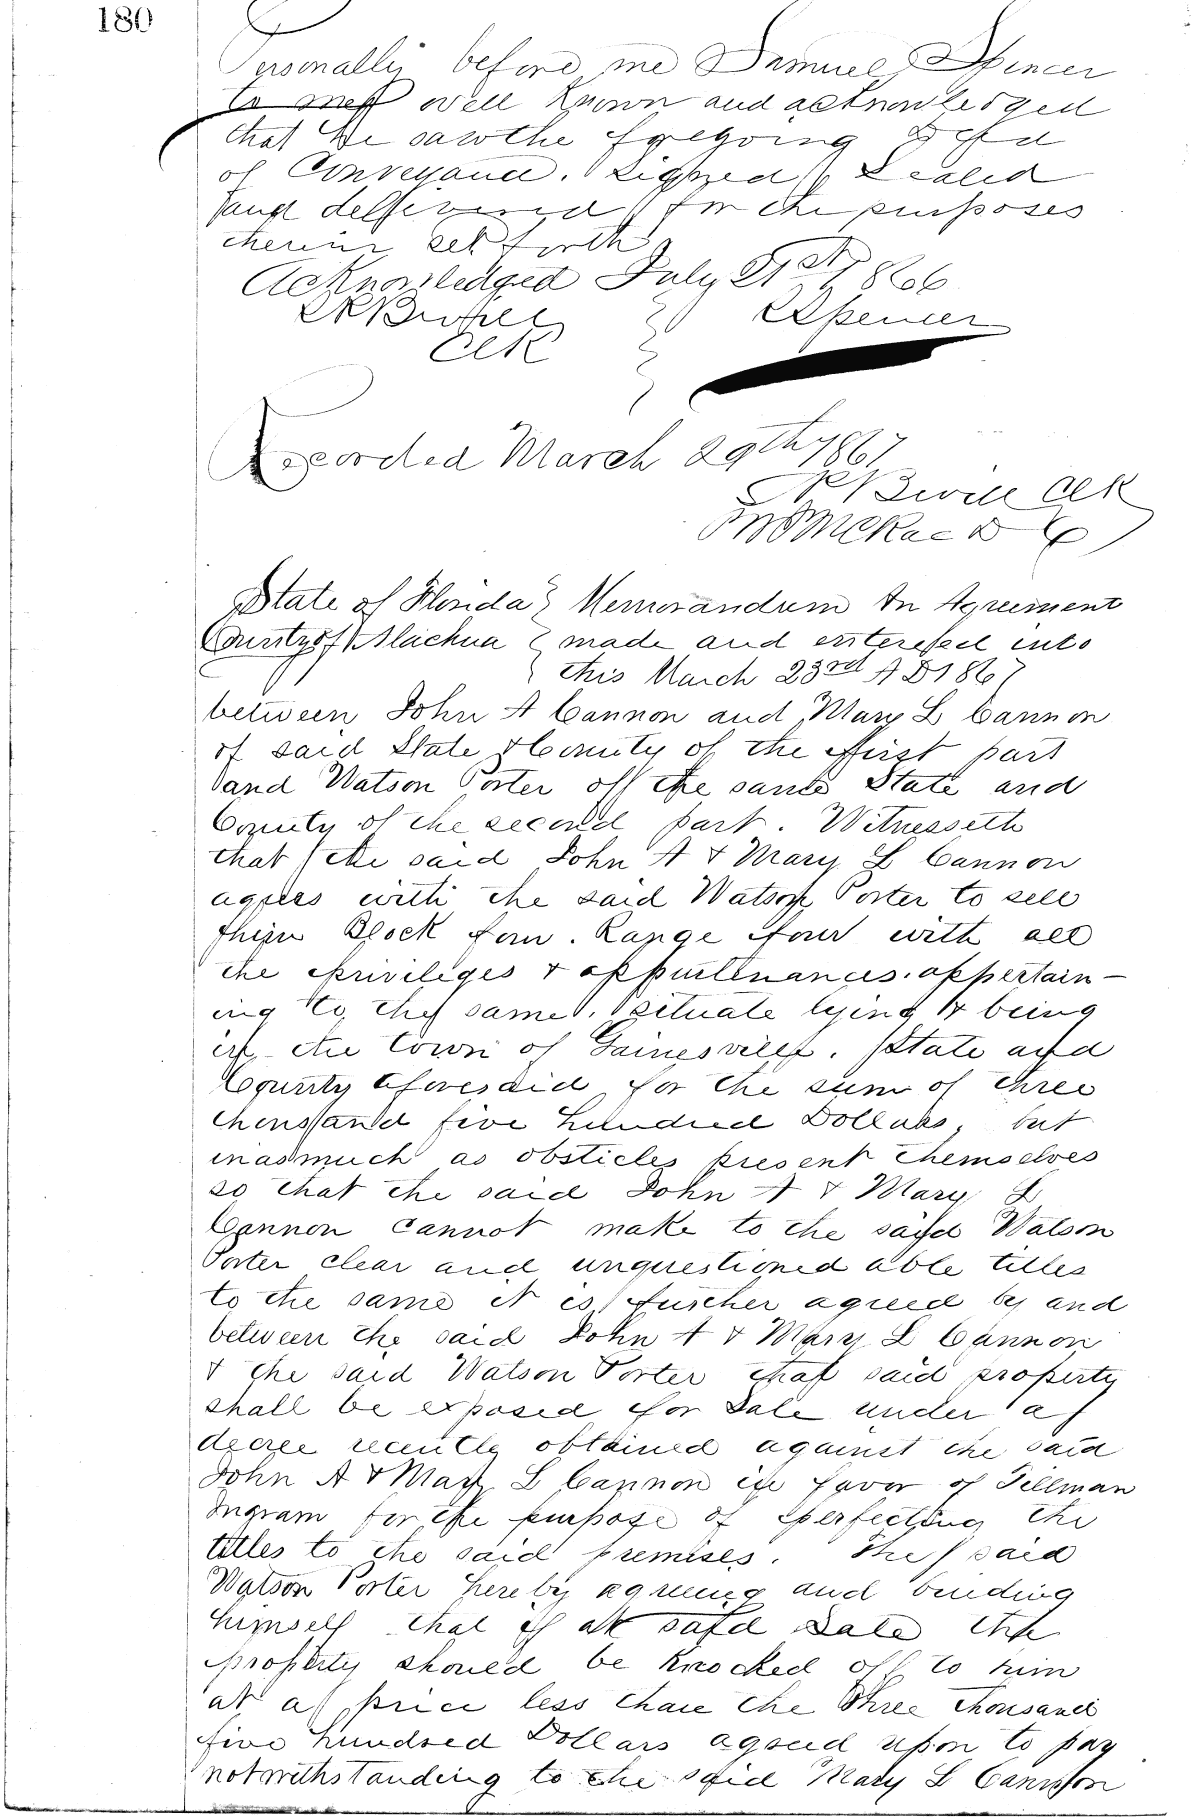 180
Personally before me Samuel Spencer
to me well known and acknowledged
that he saw the foregoing Deed
of Conveyance. Signed Sealed
and delivered for the purposes
therein set forth
Acknowledged July 21st 1866
Clk
SSpencer
Recorded March 29th 1867
Clk
McRae D C
State of Florida } Memorandum An Agreement
County of Alachua } made and entered into
this March 23rd A D 1867
between John A Cannon and Mary L Cannon
of said State & County of the first part
and Watson Porter of the same State and
County of the second part. Witnesseth
that the said John A & Mary L Cannon
agrees with the said Watson Porter to sell
him Block four. Range four with all
the privileges & appurtenances. appertain-
ing to the same. situate lying & being
in the town of Gainesville. State and
County aforesaid for the sum of three
thousand five hundred Dollars, but
inasmuch as obsticles present themselves
so that the said John A & Mary L
Cannon cannot make to the said Watson
Porter clear and unquestioned able titles
to the same it is further agreed by and
between the said John A & Mary L Cannon
& the said Watson Porter that said property
shall be exposed for Sale under a
decree recently obtained against the said
John A & Mary L Cannon in favor of Tillman
Ingram for the purpose of perfecting the
titles to the said premises. The said
Watson Porter hereby agreeing and binding
himself that if at said Sale the
property should be knocked off to him
at a price less than the three thousand
five hundred Dollars agreed upon to pay
notwithstanding to the said Mary L Cannon